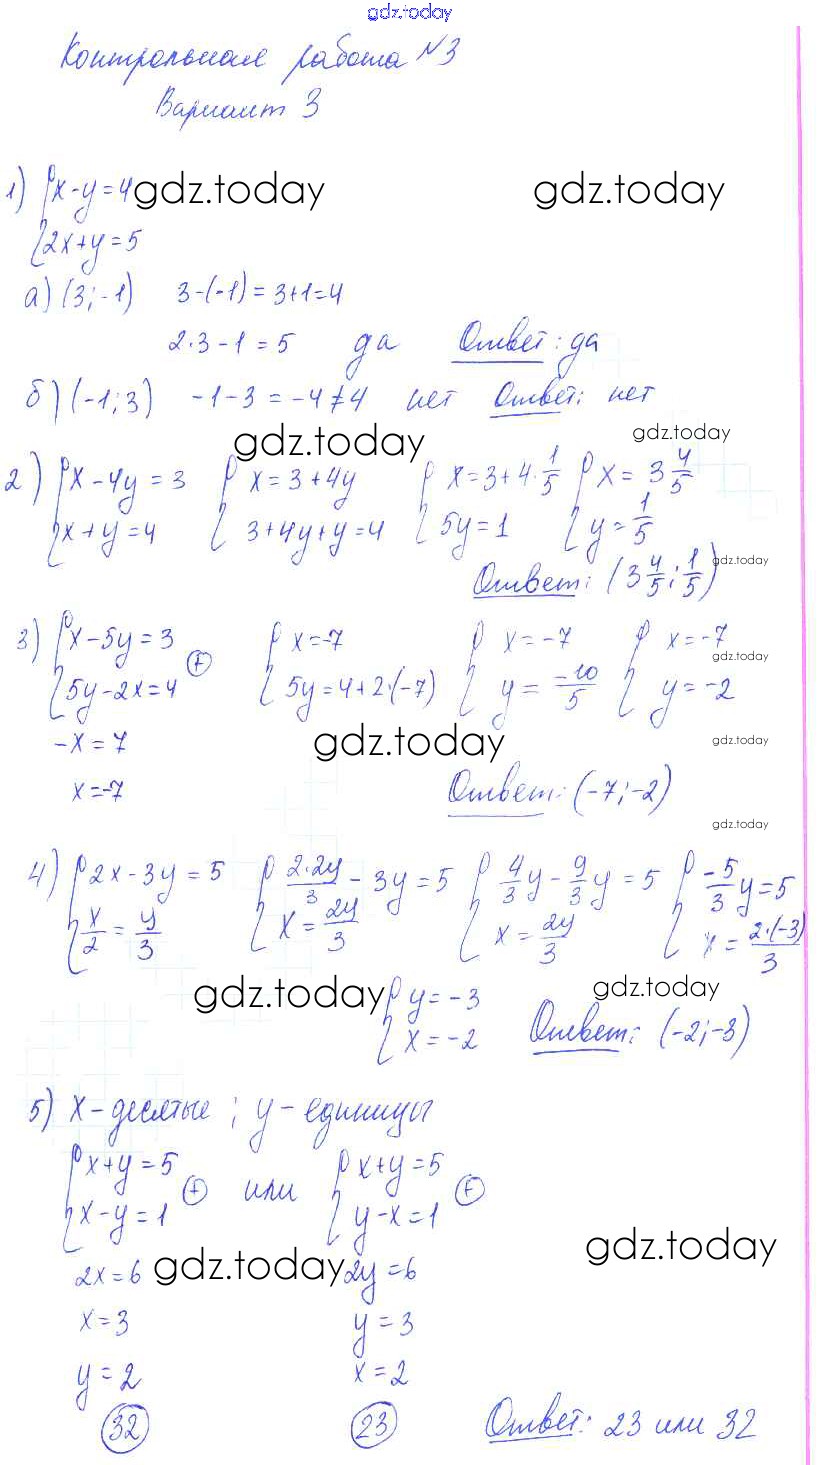 gdz.today
Контрольная работа №3
Вариант 3
1) { x-y=4 gdz.today gdz.today
2x+y=5
а) (3;-1) 3-(-1)=3+1=4
2·3-1=5 да Ответ: да
б) (-1;3) -1-3=-4≠4 нет Ответ: нет
gdz.today gdz.today
2) { x-4y=3 { x=3+4y { x=3+4·1/5 { x=3 4/5
x+y=4 3+4y+y=4 5y=1 y=1/5
gdz.today
Ответ: (3 4/5; 1/5)
3) { x-5y=3 (+) { x=-7 { x=-7 { x=-7
gdz.today
5y-2x=4 5y=4+2·(-7) y=-10/5 y=-2
-x=7 gdz.today gdz.today
x=-7 Ответ: (-7;-2)
gdz.today
4) { 2x-3y=5 { 2·2y/3-3y=5 { 4/3y-9/3y=5 { -5/3y=5
x/2=y/3 x=2y/3 x=2y/3 x=2·(-3)/3
gdz.today { y=-3 gdz.today
x=-2 Ответ: (-2;-3)
5) x-десятые; y-единицы
{ x+y=5 (+) или { x+y=5 (+)
x-y=1 y-x=1
gdz.today
2x=6 gdz.today 2y=6
x=3 y=3
y=2 x=2
32 23 Ответ: 23 или 32